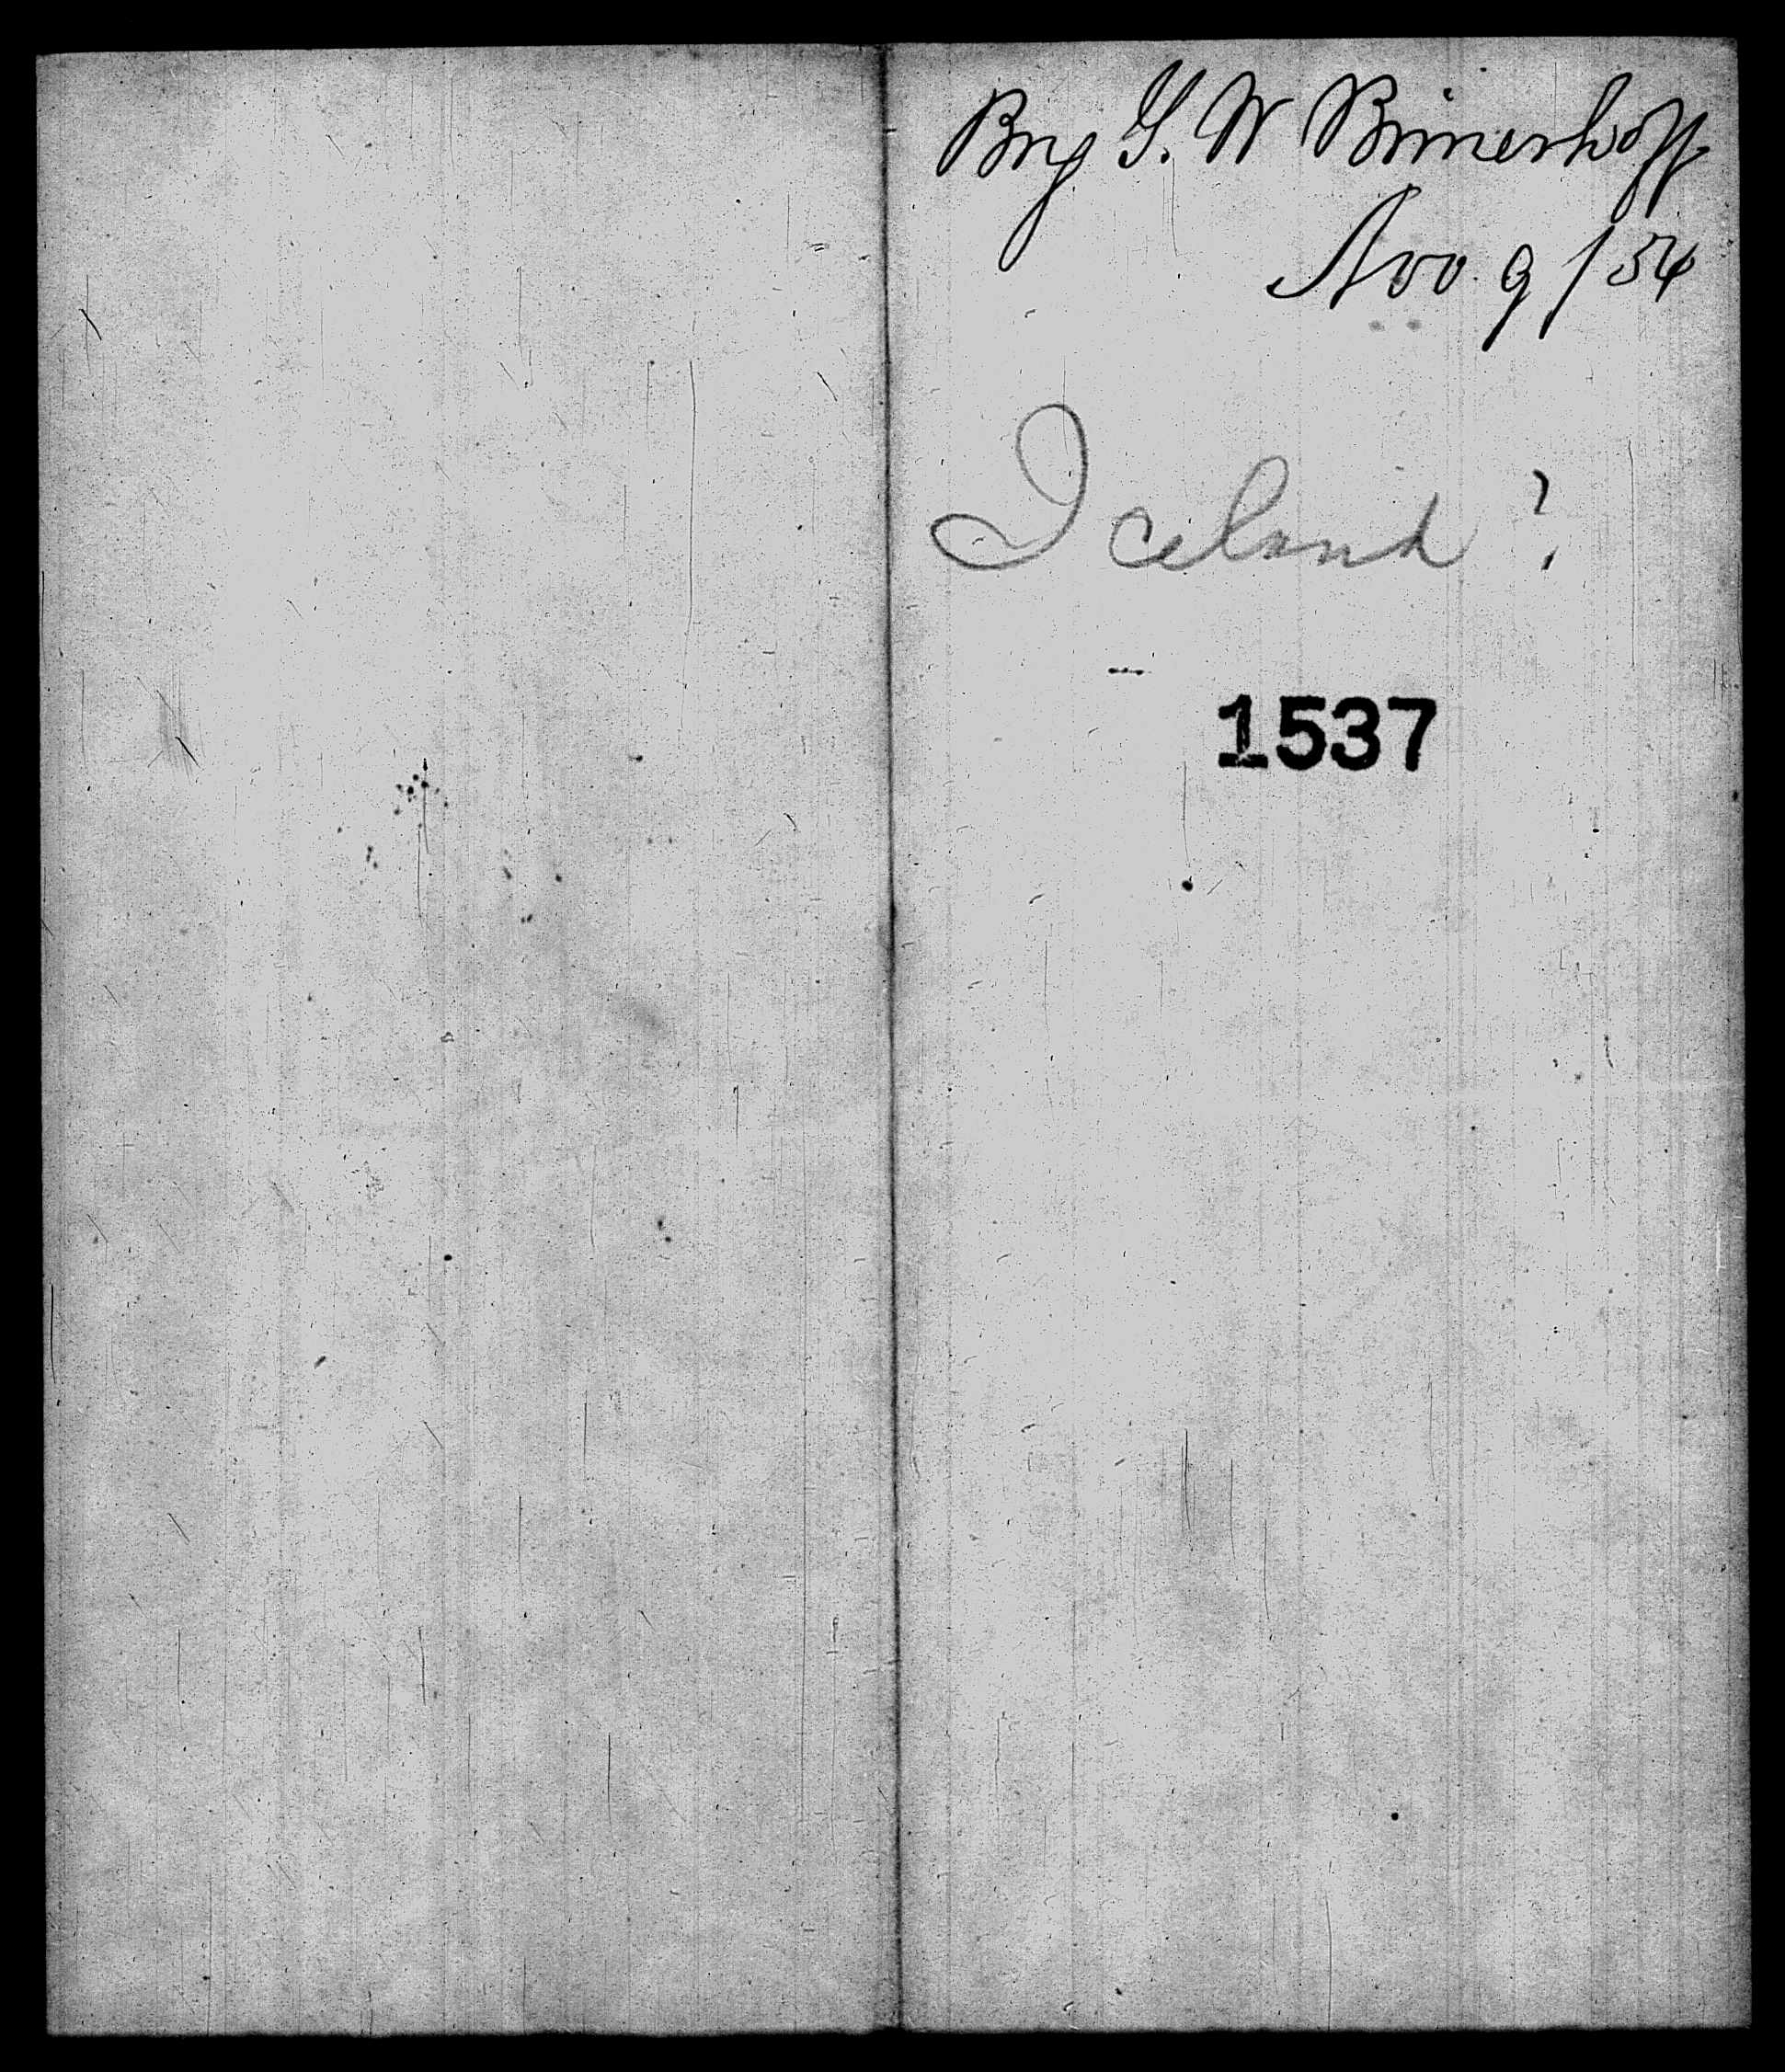 Brg G. W Brinerhoff
Nov. 9 / 54
Iceland ?
1537